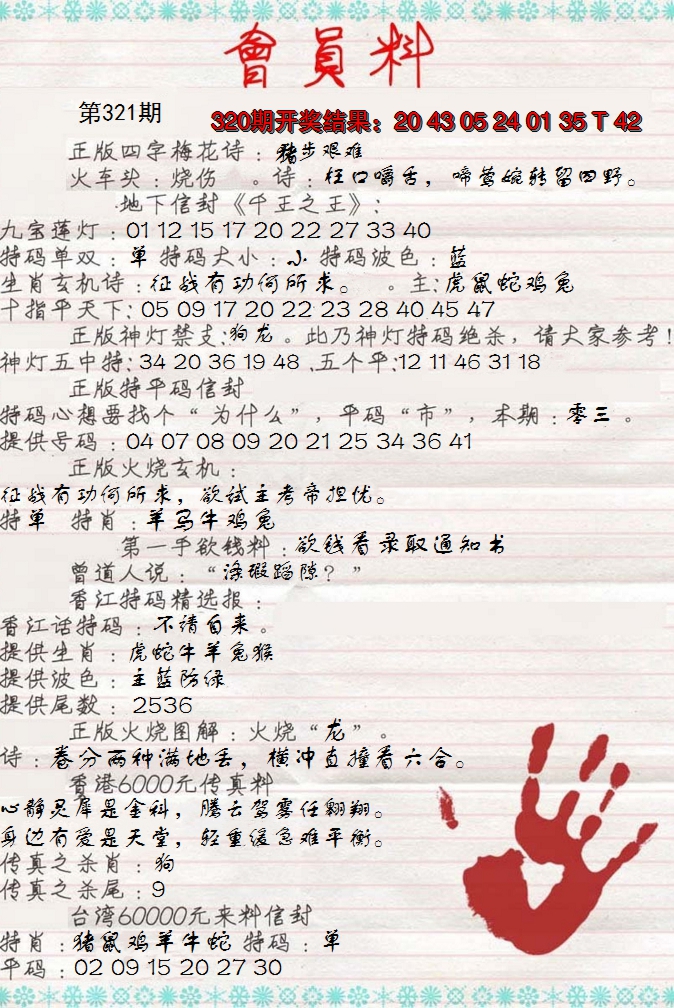 會員料
第321期
320期开奖结果：20 43 05 24 01 35 T 42
正版四字梅花诗：猪步艰难
火车头：烧伤　。诗：枉口嚼舌，啼莺婉转留四野。
地下信封《千王之王》：
九宝莲灯：01 12 15 17 20 22 27 33 40
特码单双：单 特码大小：小 特码波色：蓝
生肖玄机诗：征战有功何所求。　。主:虎鼠蛇鸡兔
十指平天下:05 09 17 20 22 23 28 40 45 47
正版神灯禁支:狗龙。此乃神灯特码绝杀，请大家参考!
神灯五中特:34 20 36 19 48 .五个平:12 11 46 31 18
正版特平码信封
特码心想要找个“为什么”，平码“市”，本期：零三。
提供号码：04 07 08 09 20 21 25 34 36 41
正版火烧玄机：
征战有功何所求，欲试主考帝担忧。
特单　特肖：羊马牛鸡兔
第一手欲钱料：欲钱看录取通知书
曾道人说：“涤瑕蹈隙？”
香江特码精选报：
香江话特码：不请自来。
提供生肖：虎蛇牛羊兔猴
提供波色：主蓝防绿
提供尾数：2536
正版火烧图解：火烧“龙”。
诗：卷分两种满地丢，横冲直撞看六合。
香港6000元传真料
心静灵犀是金科，腾云驾雾任翱翔。
身边有爱是天堂，轻重缓急难平衡。
传真之杀肖：狗
传真之杀尾：9
台湾60000元来料信封
特肖：猪鼠鸡羊牛蛇 特码：单
平码：02 09 15 20 27 30